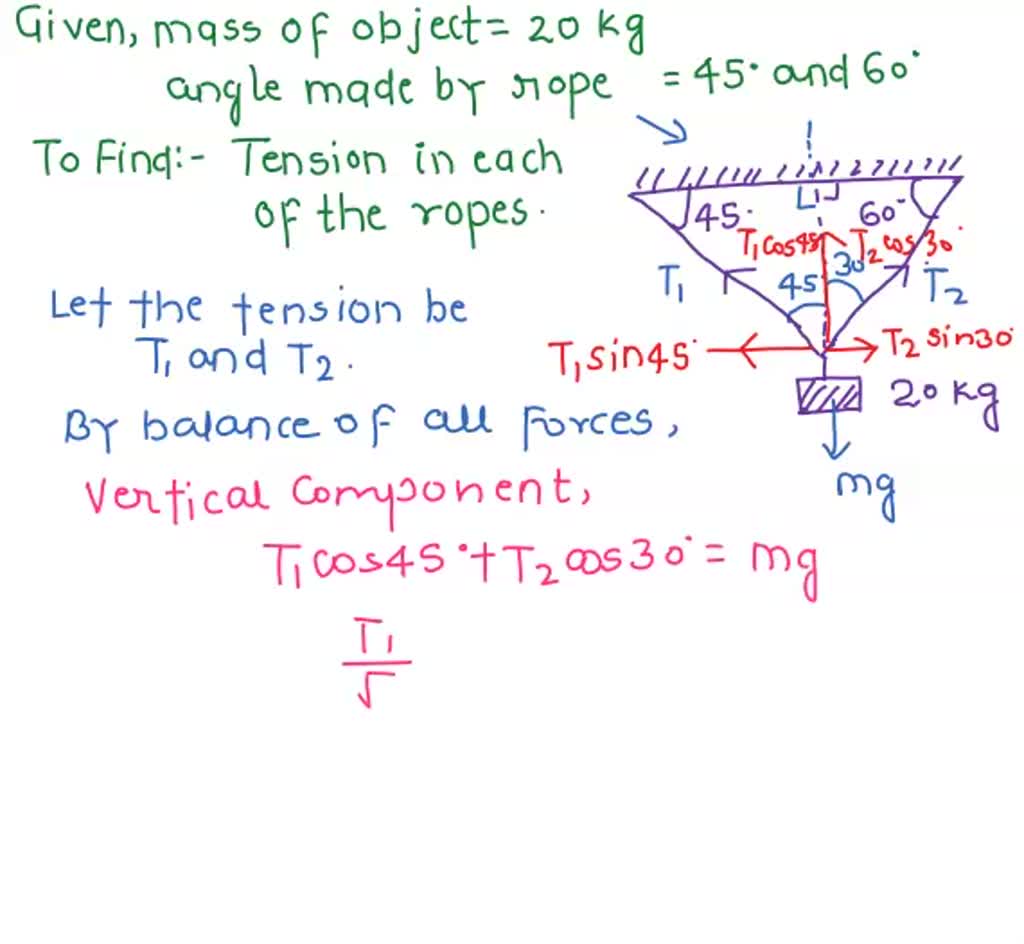 Given, mass of object = 20 kg
angle made by rope = 45° and 60°
To Find:- Tension in each
of the ropes.
45°
60°
T₁cos45°
T₂cos30°
T₁
45
30
T₂
T₁sin45°
T₂sin30°
20 kg
mg
Let the tension be
T₁ and T₂.
By balance of all forces,
Vertical Component,
T₁cos45°+T₂cos30° = mg
T₁
√